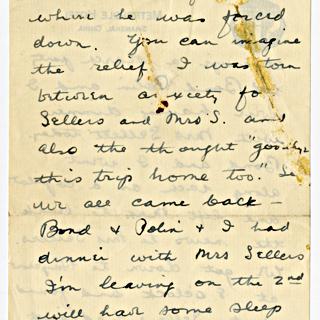 where he was forced
down. You can imagine
the relief I was torn
between anxiety for
Sellers and Mrs S. and
also the thought "goodbye
this trip home too." So
we all came back –
Bond & Polin & I had
dinner with Mrs Sellers
I'm leaving on the 2nd
will have some sleep